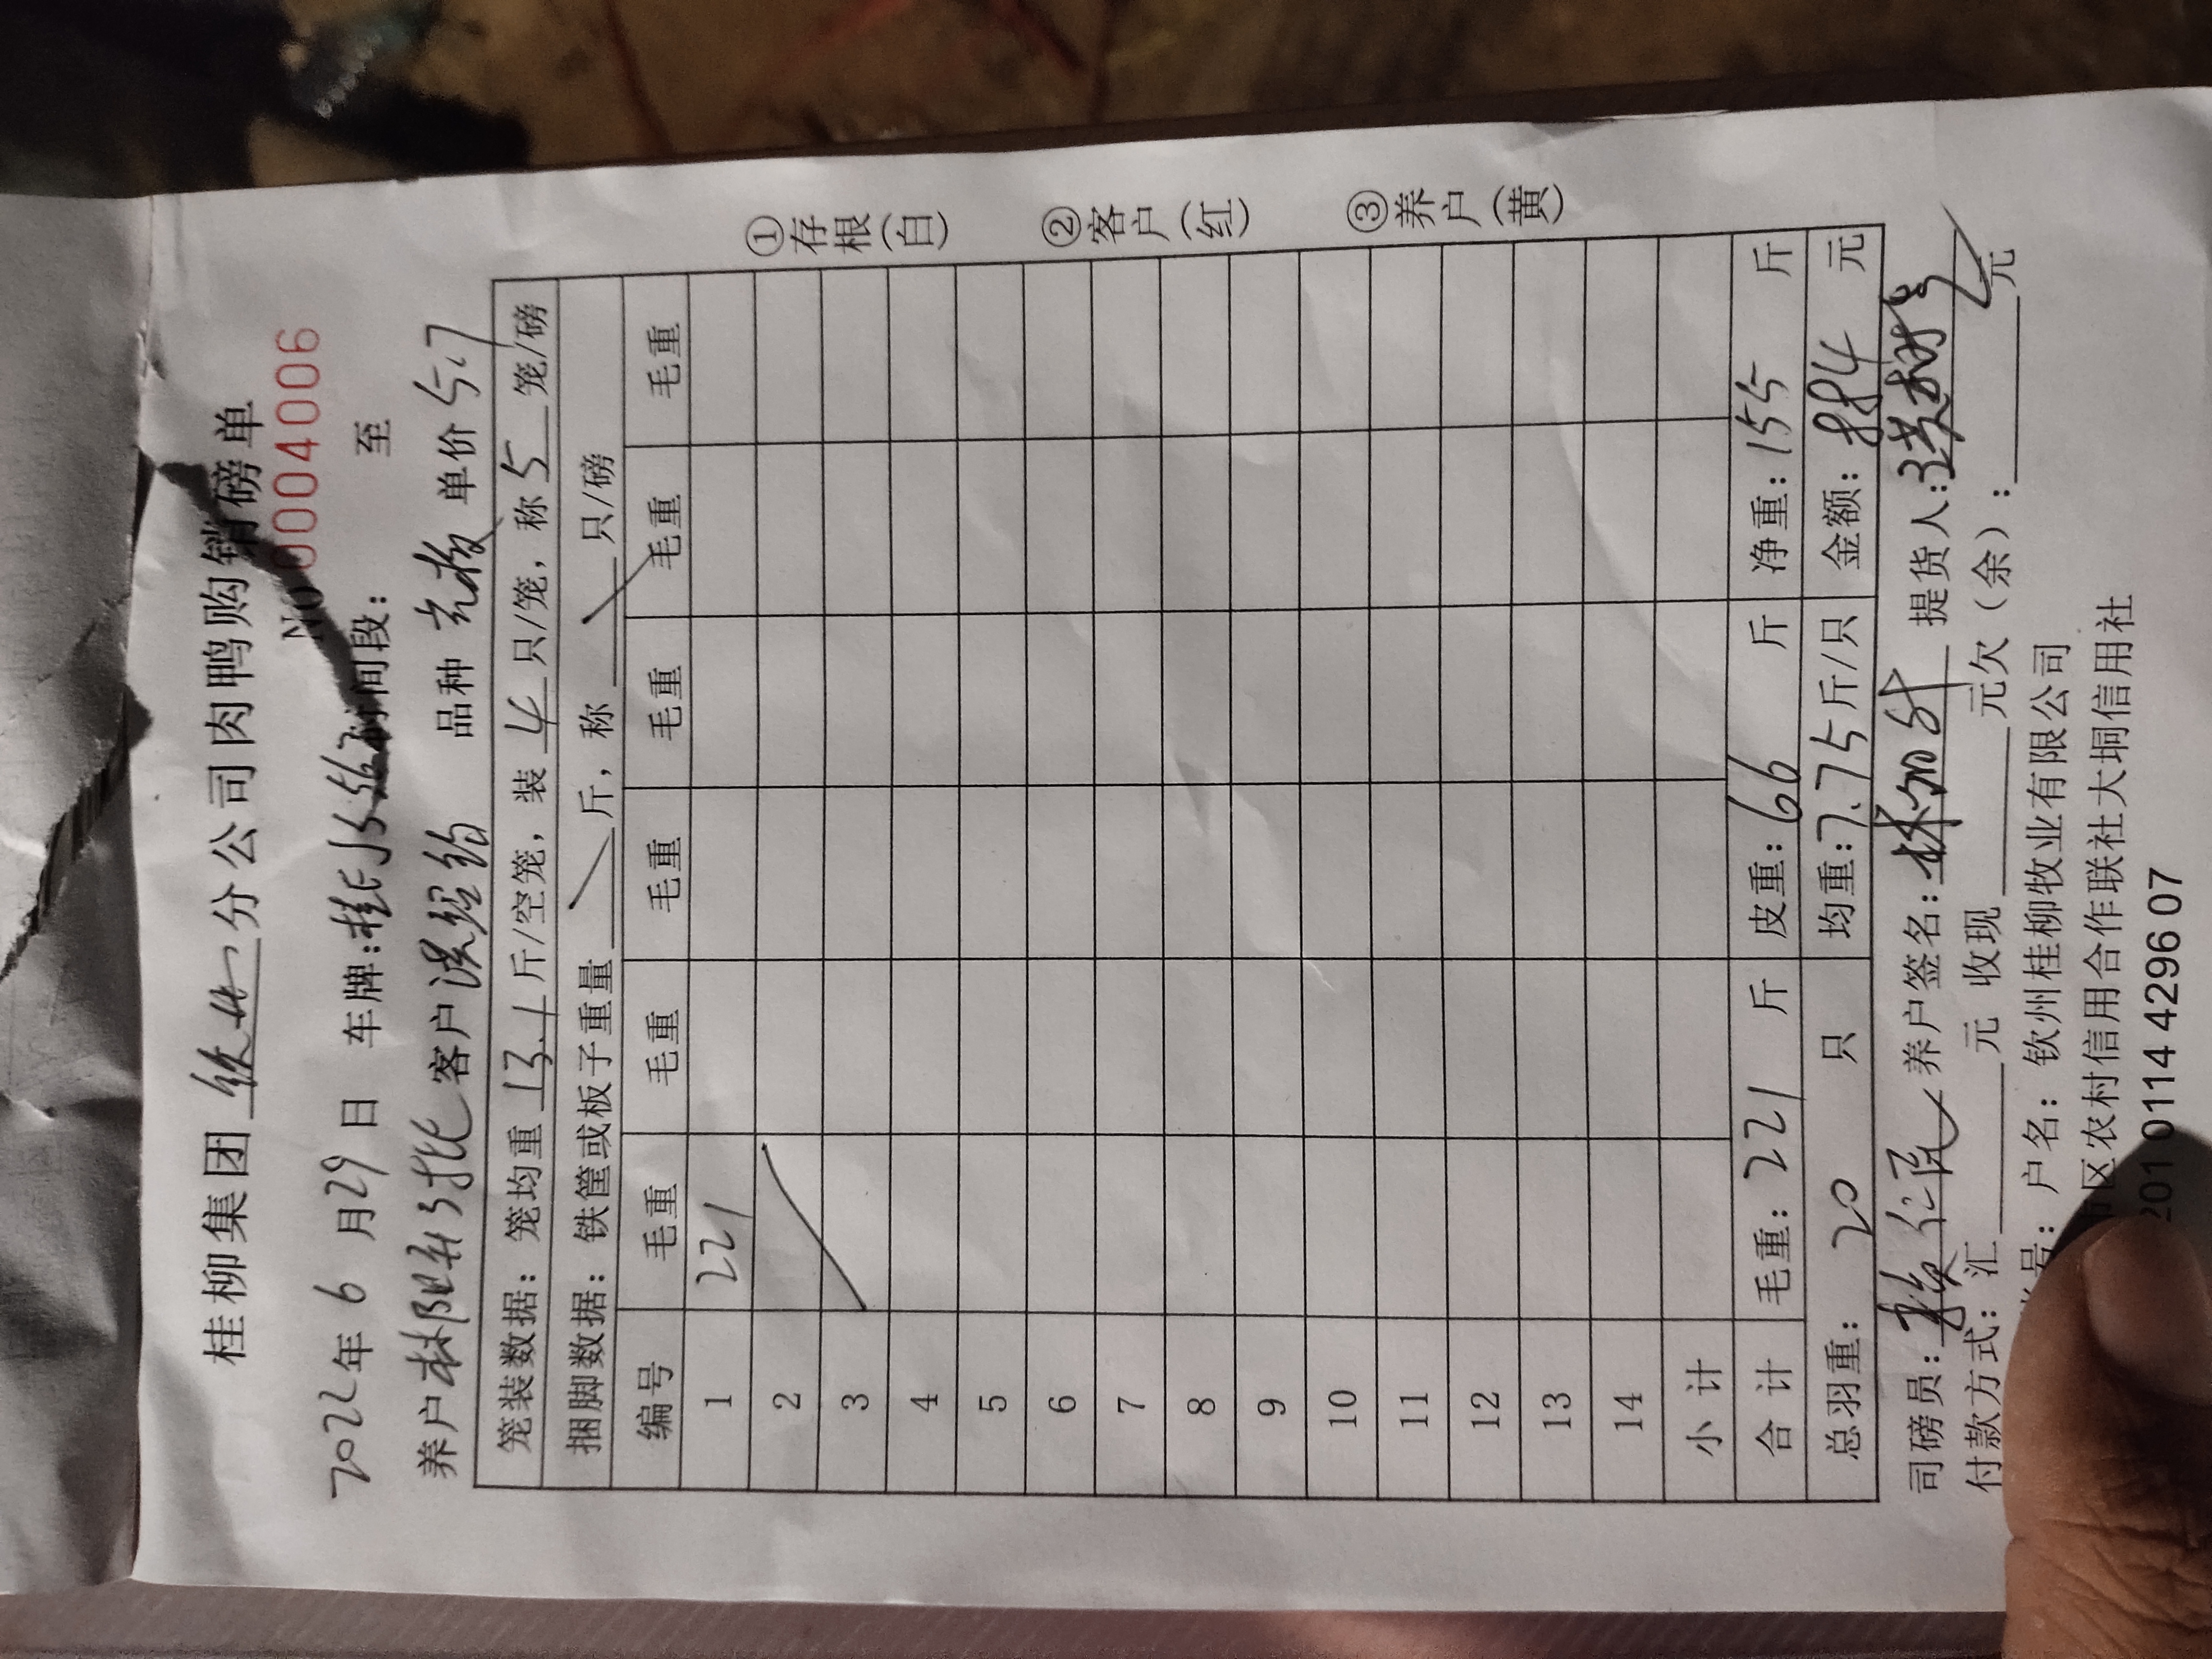 桂柳集团 钦州 分公司肉鸭购销磅单
NO 0004006
2022年 6 月29 日 车牌:桂 时间段: 至
养户 林阳 3批 客户 洪绍 品种 单价 5.7
笼装数据: 笼均重 13.1 斤/空笼, 装 4 只/笼, 称 5 笼/磅
捆脚数据: 铁筐或板子重量 斤, 称 只/磅
编号 毛重 毛重 毛重 毛重 毛重 毛重
1 221
2
3
4
5
6
7
8
9
10
11
12
13
14
小计
合计 毛重: 221 斤 皮重: 66 斤 净重: 155 斤
总羽重: 20 只 均重: 7.75 斤/只 金额: 884 元
司磅员: 养户签名: 林 提货人: 洪
付款方式: 汇 元 收现 元欠(余): 元
号: 户名: 钦州桂柳牧业有限公司
市区农村信用合作联社大垌信用社
201 0114 4296 07
①存根(白) ②客户(红) ③养户(黄)